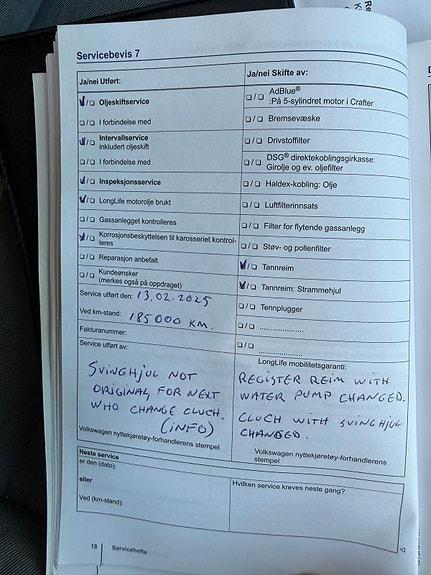 Servicebevis 7
Ja/nei Utført:
Oljeskiftservice
I forbindelse med
Intervallservice
inkludert oljeskift
I forbindelse med
Inspeksjonsservice
LongLife motorolje brukt
Gassanlegget kontrolleres
Korrosjonsbeskyttelsen til karosseriet kontrol-
leres
Reparasjon anbefalt
Kundeønsker
(merkes også på oppdraget)
Service utført den: 13.02.2025
Ved km-stand: 185000 KM.
Fakturanummer:
Service utført av:
SVINGHJUL NOT
ORIGINAL, FOR NEXT
WHO CHANGE CLUCH.
(INFO)
Volkswagen nyttekjøretøy-forhandlerens
stempel
Ja/nei Skifte av:
AdBlue®
:På 5-sylindret motor i Crafter
Bremsevæske
Drivstoffilter
DSG® direktekoblingsgirkasse:
Girolje og ev. oljefilter
Haldex-kobling: Olje
Luftfilterinnsats
Filter for flytende gassanlegg
Støv- og pollenfilter
Tannreim
Tannreim: Strammehjul
Tennplugger
LongLife mobilitetsgaranti:
REGISTER REIM WITH
WATER PUMP CHANGED.
CLUCH WITH SVINGHJUL
CHANGED.
Volkswagen nyttekjøretøy-forhandlerens
stempel
Neste service
er den (dato):
eller
Ved (km-stand):
Hvilken service kreves neste gang?
18 Servicehefte